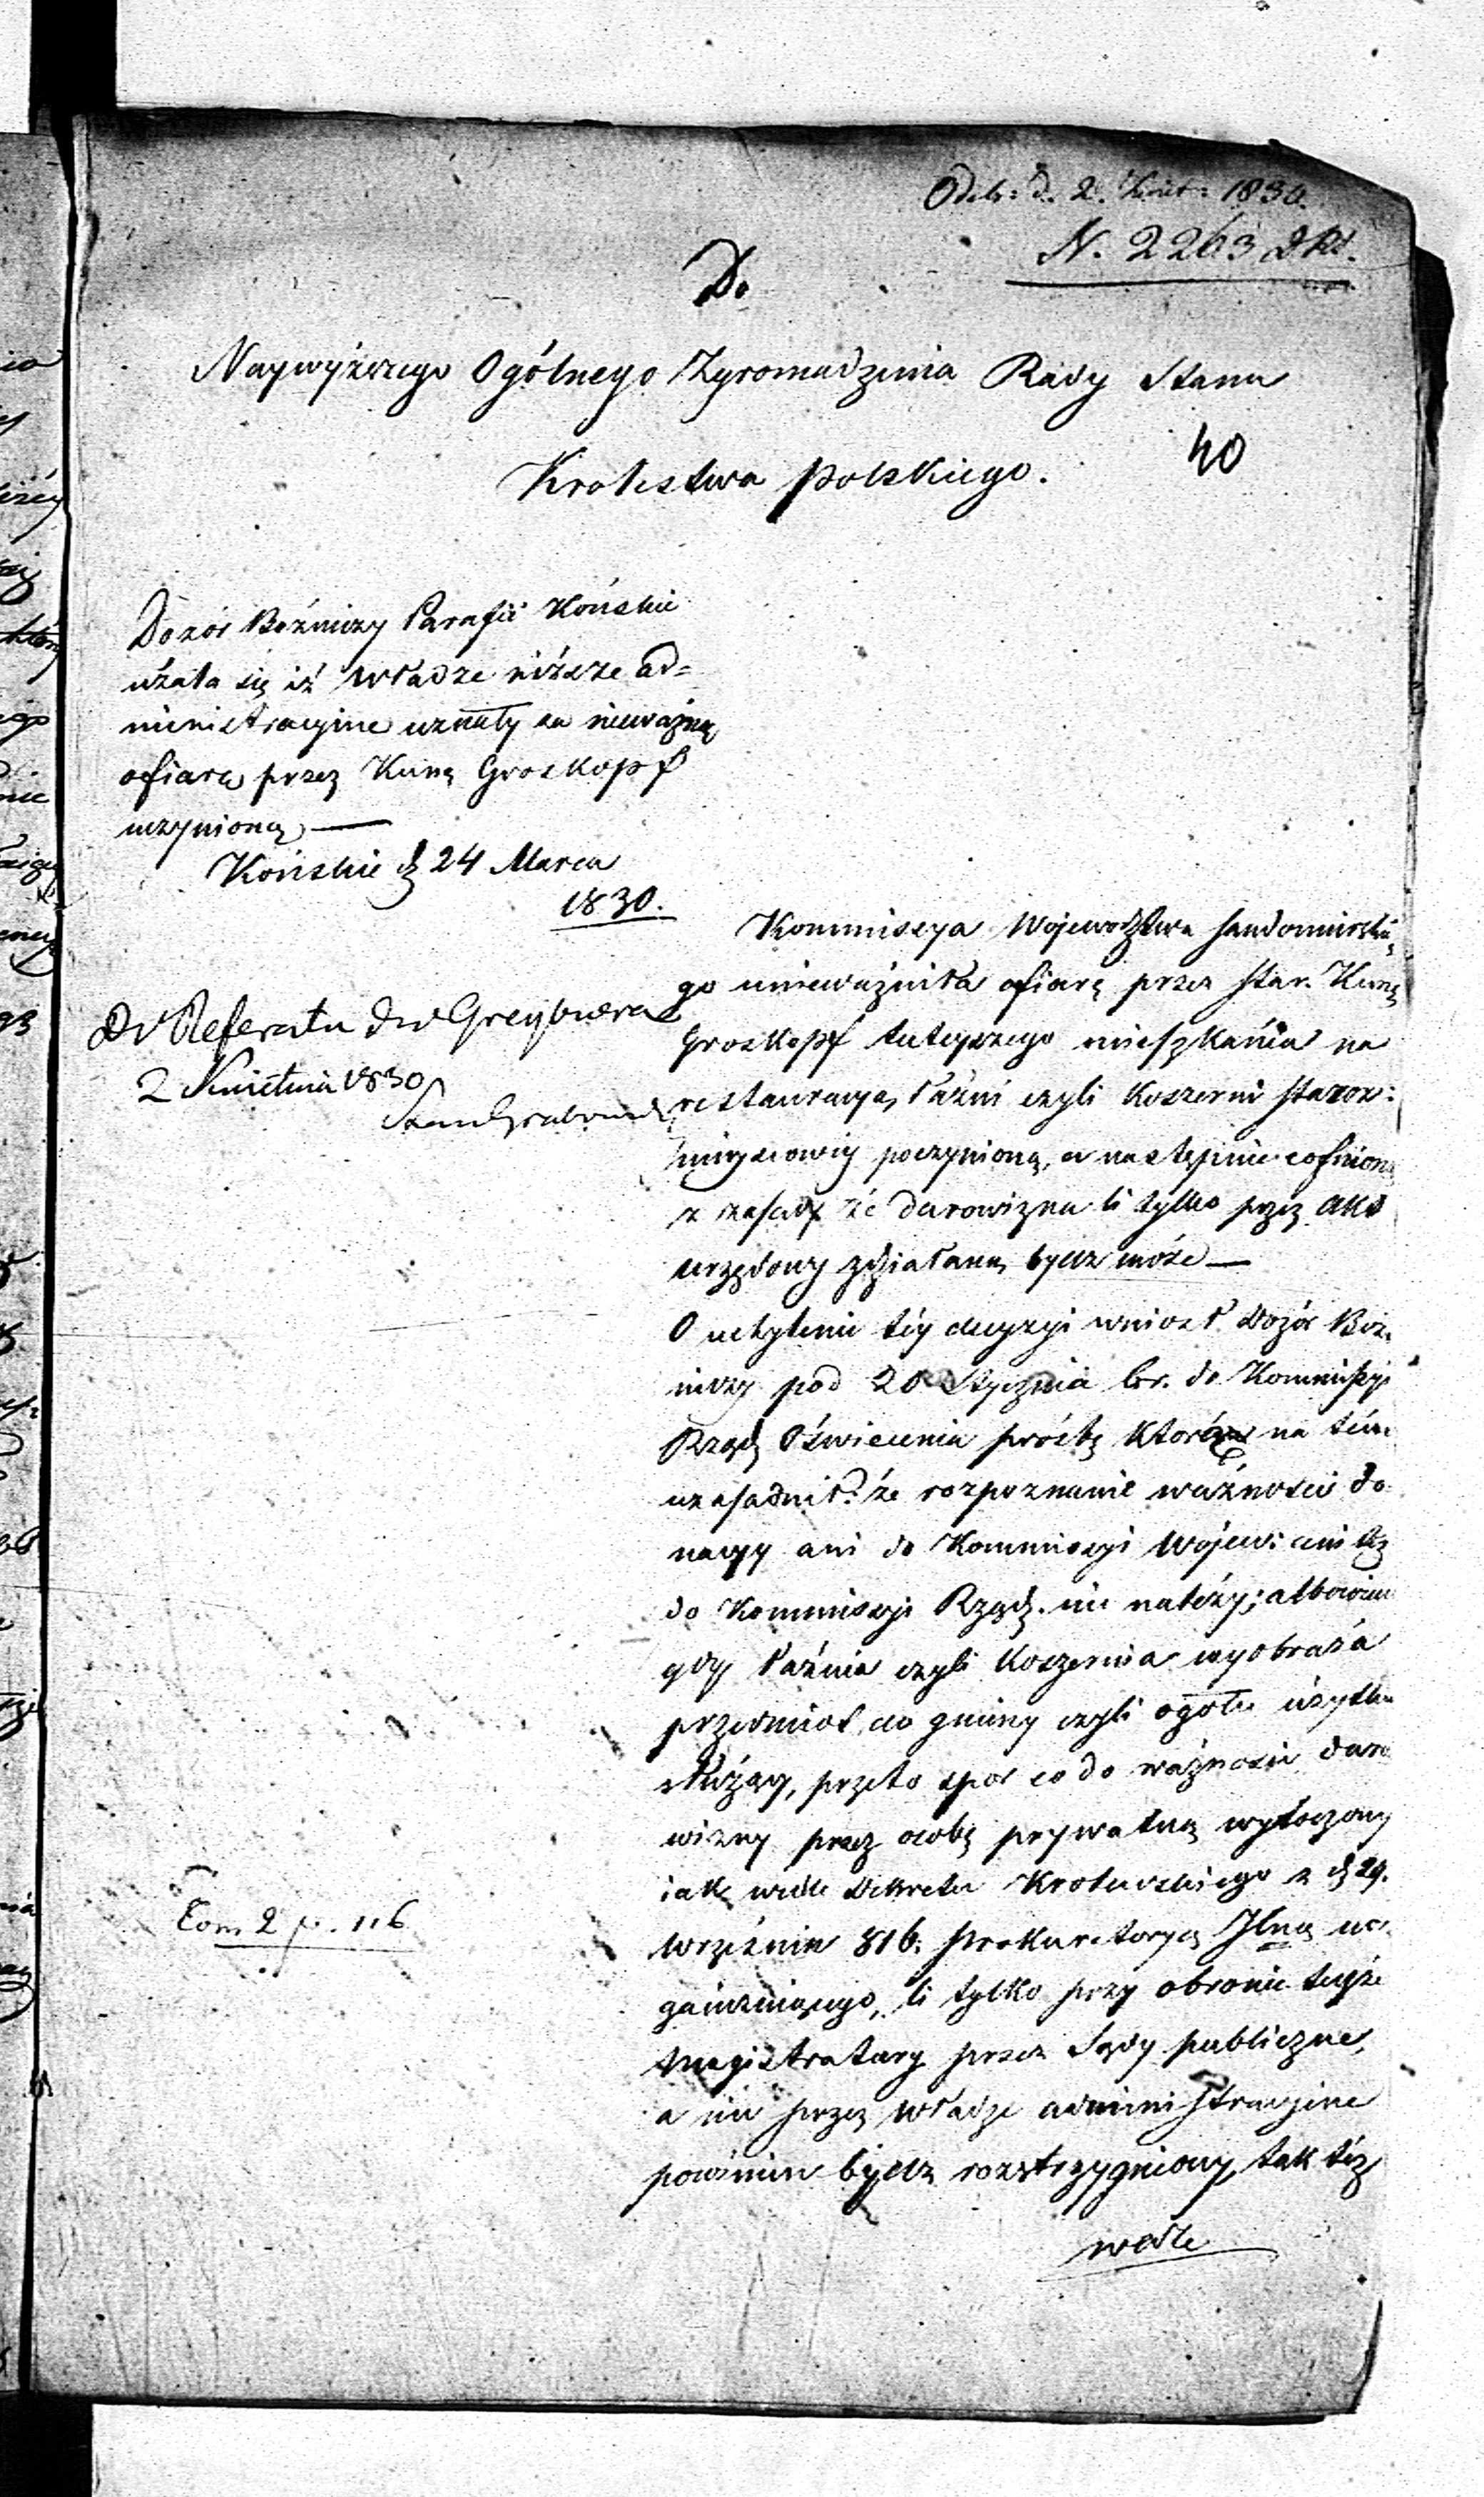 Odeb: d. 2. Kwiet: 1830.
N. 2263
Do
Naywyższego Ogólnego Zgromadzenia Rady Stanu
40
Krolestwa Polskiego.
Dozór Bożniczy Parafii Końskie
użala się iż Władze niższe ad=
ministracyine uznały za nieważną
ofiarę przez Kunę Groskopf
uczynioną —
Końskie d 24 Marca
1830.
Do Referatu
2 Kwietnia 1830
Kommissya Województwa Sandomirskie=
go unieważniła ofiarę przez Star. Kunę
Groskopf tuteyszego mieszkańca na
restauracyą Łaźni czyli Koszerni Staroz:
mieyscowéy poczynioną, a następnie cofnioną
z zasady że darowizna li tylko przez akt
urzędowy zdziałaną bydź może —
O uchylenie téy decyzyi wniosł Dozór Boż=
niczy pod 20 Stycznia b.r. do Kommissyi
Rządz Oświecenia prośbę którą na tém
uzasadnił: że rozpoznanie ważności do
nacyi ani do Kommissyi Wojew: ani też
do Kommissyi Rządz. nie należy; albowiem
gdy Łaźnia czyli Koszernia wyobraża
przedmiot do gminy czyli ogółu użytku
służący, przeto spór co do ważności daro
wizny przez osobę prywatną wytoczony
iak wedle Dekretu Krolewskiego z d 29.
Września 816. Prokuratoryą Jlną or
ganizuiącego, li tylko przy obronie teyże
Magistratury przez Sądy publiczne,
a nie przez Władze administracyine
powinien bydź rozstrzygniony, tak też
Tom 2 p. 116
wedle